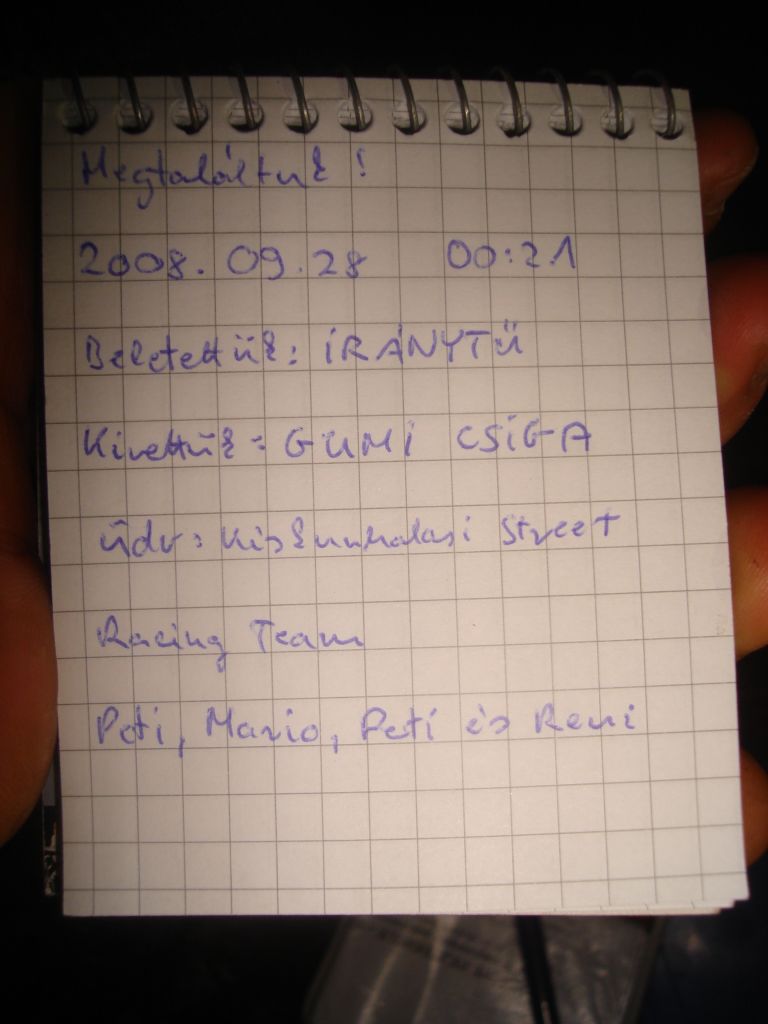 Megtaláltuk!
2008.09.28 00:21
Beletettük: IRÁNYTŰ
Kivettük: GUMI CSIGA
Üdv: Kiskunhalasi Street
Racing Team
Peti, Mario, Peti és Reni